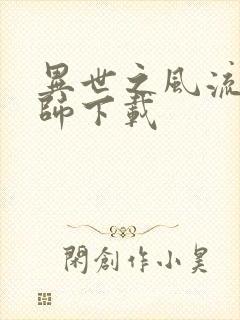 異世之風流
師下載
閑創作小昊